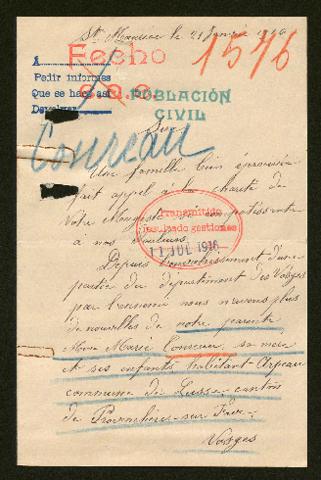 St
Fecho
1576
A
Pedir informes
Que se hace así
Devolver
POBLACIÓN
CIVIL
Conreau
Une famille bien éprouvée
fait appel à la charité de
Votre Majesté si compatissante
à nos douleurs.
Transmitido
Resultado gestiones
11 JUL 1916
Depuis l'envahissement d'une
partie du département des Vosges
par l'ennemi nous n'avons plus
de nouvelles de notre parente
Mme Marie Conreau, sa mère
et ses enfants, habitant
commune de Lusse, canton
de Provenchères-sur-Fave
Vosges